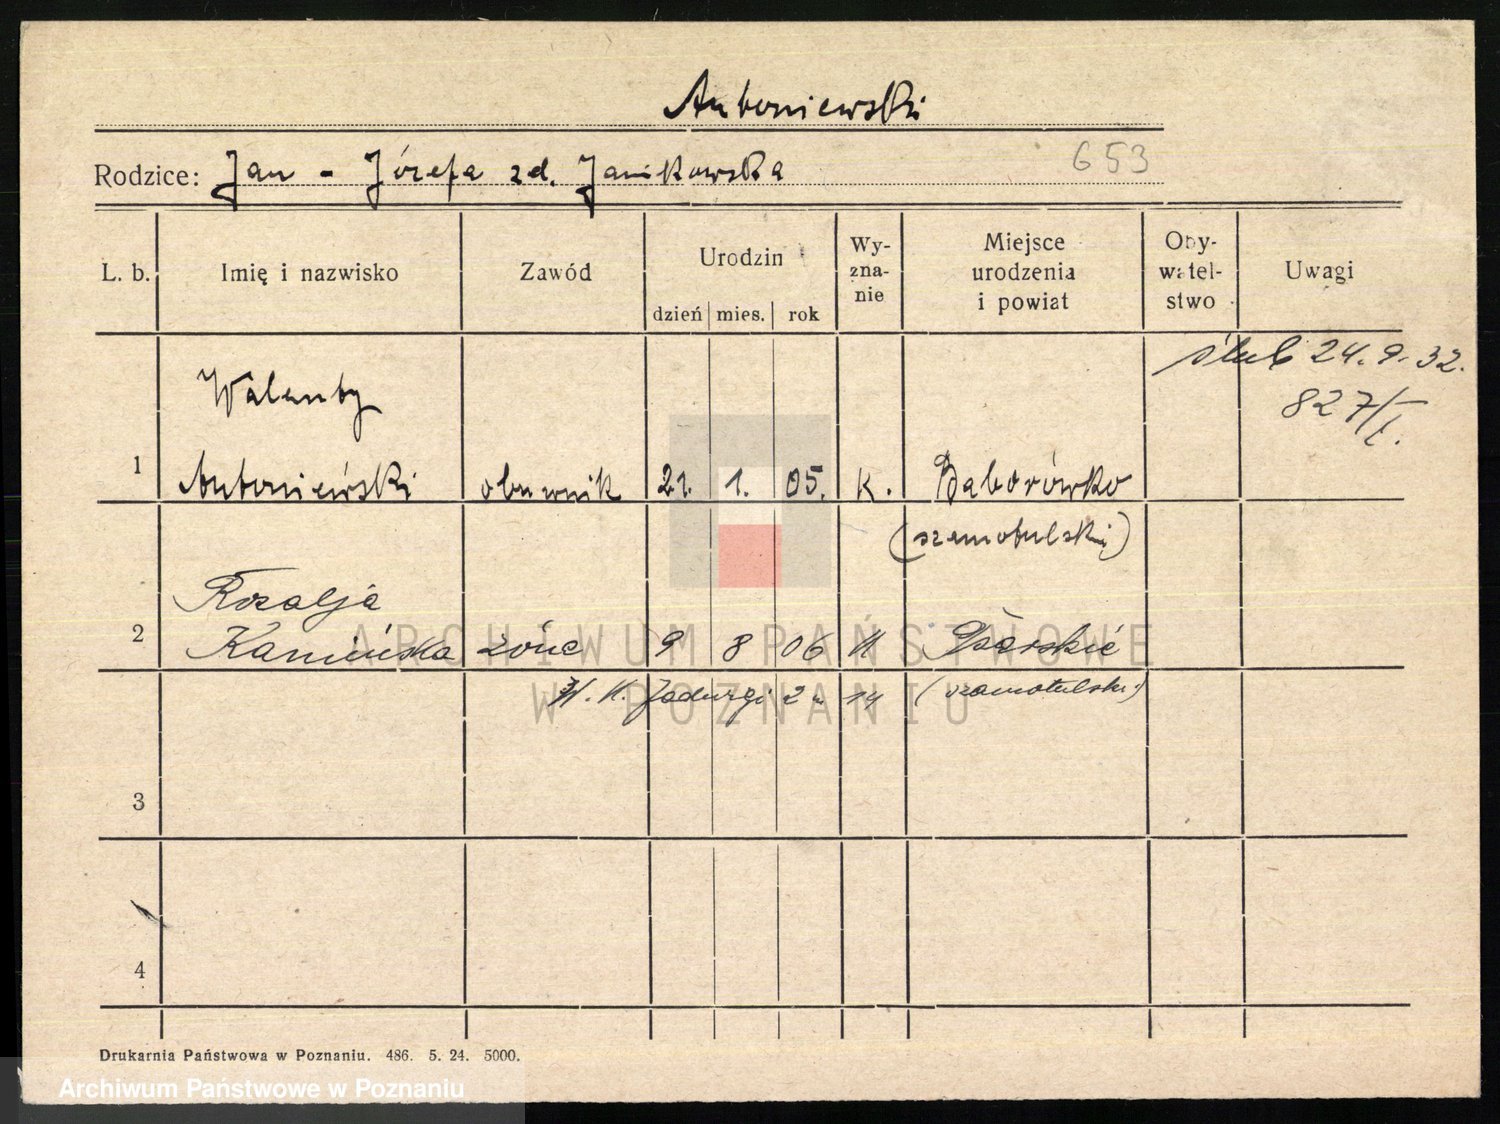 Antoniewski
Rodzice: Jan - Józefa zd. Janikowska
653
L. b. Imię i nazwisko Zawód Urodzin dzień mies. rok Wy-zna-nie Miejsce urodzenia i powiat Oby-watel-stwo Uwagi
ślub 24. 9. 32.
827/I.
Walenty
1 Antoniewski obuwnik 21. 1. 05. k. Bąborówko
(szamotulski)
Rozalja
2 Kamińska żona 9 8 06 K
K. Jadwigi 2 14 (szamotulski)
3
4
Drukarnia Państwowa w Poznaniu. 486. 5. 24. 5000.
ARCHIWUM PAŃSTWOWE
W POZNANIU
Archiwum Państwowe w Poznaniu